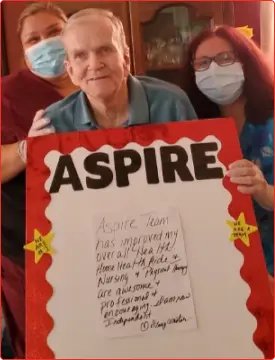 ASPIRE
Aspire Team
has improved my
over all Health
Home Health Aide +
Nursing + Physical Therapy
are awesome +
professional +
encouraging I am now
Independent